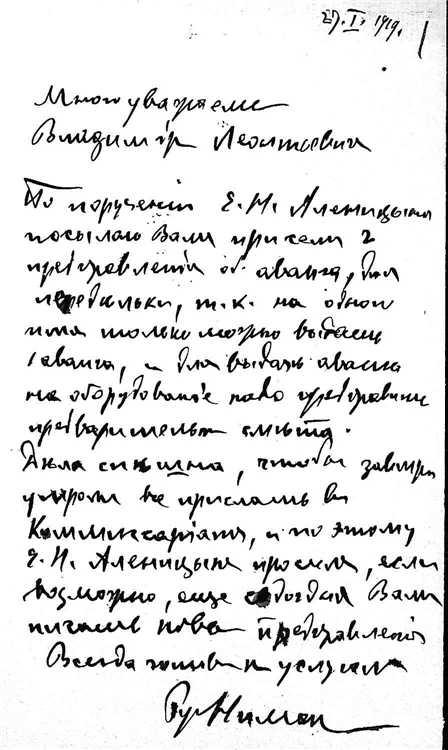 27.I.1919.
Многоуважаем
Владимир Леонтьевич
По поручению Е.Н. Аленицына
посылаю Вам при сем 2
представления об аванса, для
, т.к. на одном
только можно выдать
1 аванса, и для выдачи аванса
на оборудование надо представить
предварительн смета.
, чтобы завтра
утром ее прислать в
Коммиссариат, и по этому
Е.Н. Аленицын просил, если
возможно, еще Вам
новое представление
Всегда готовый к услугам